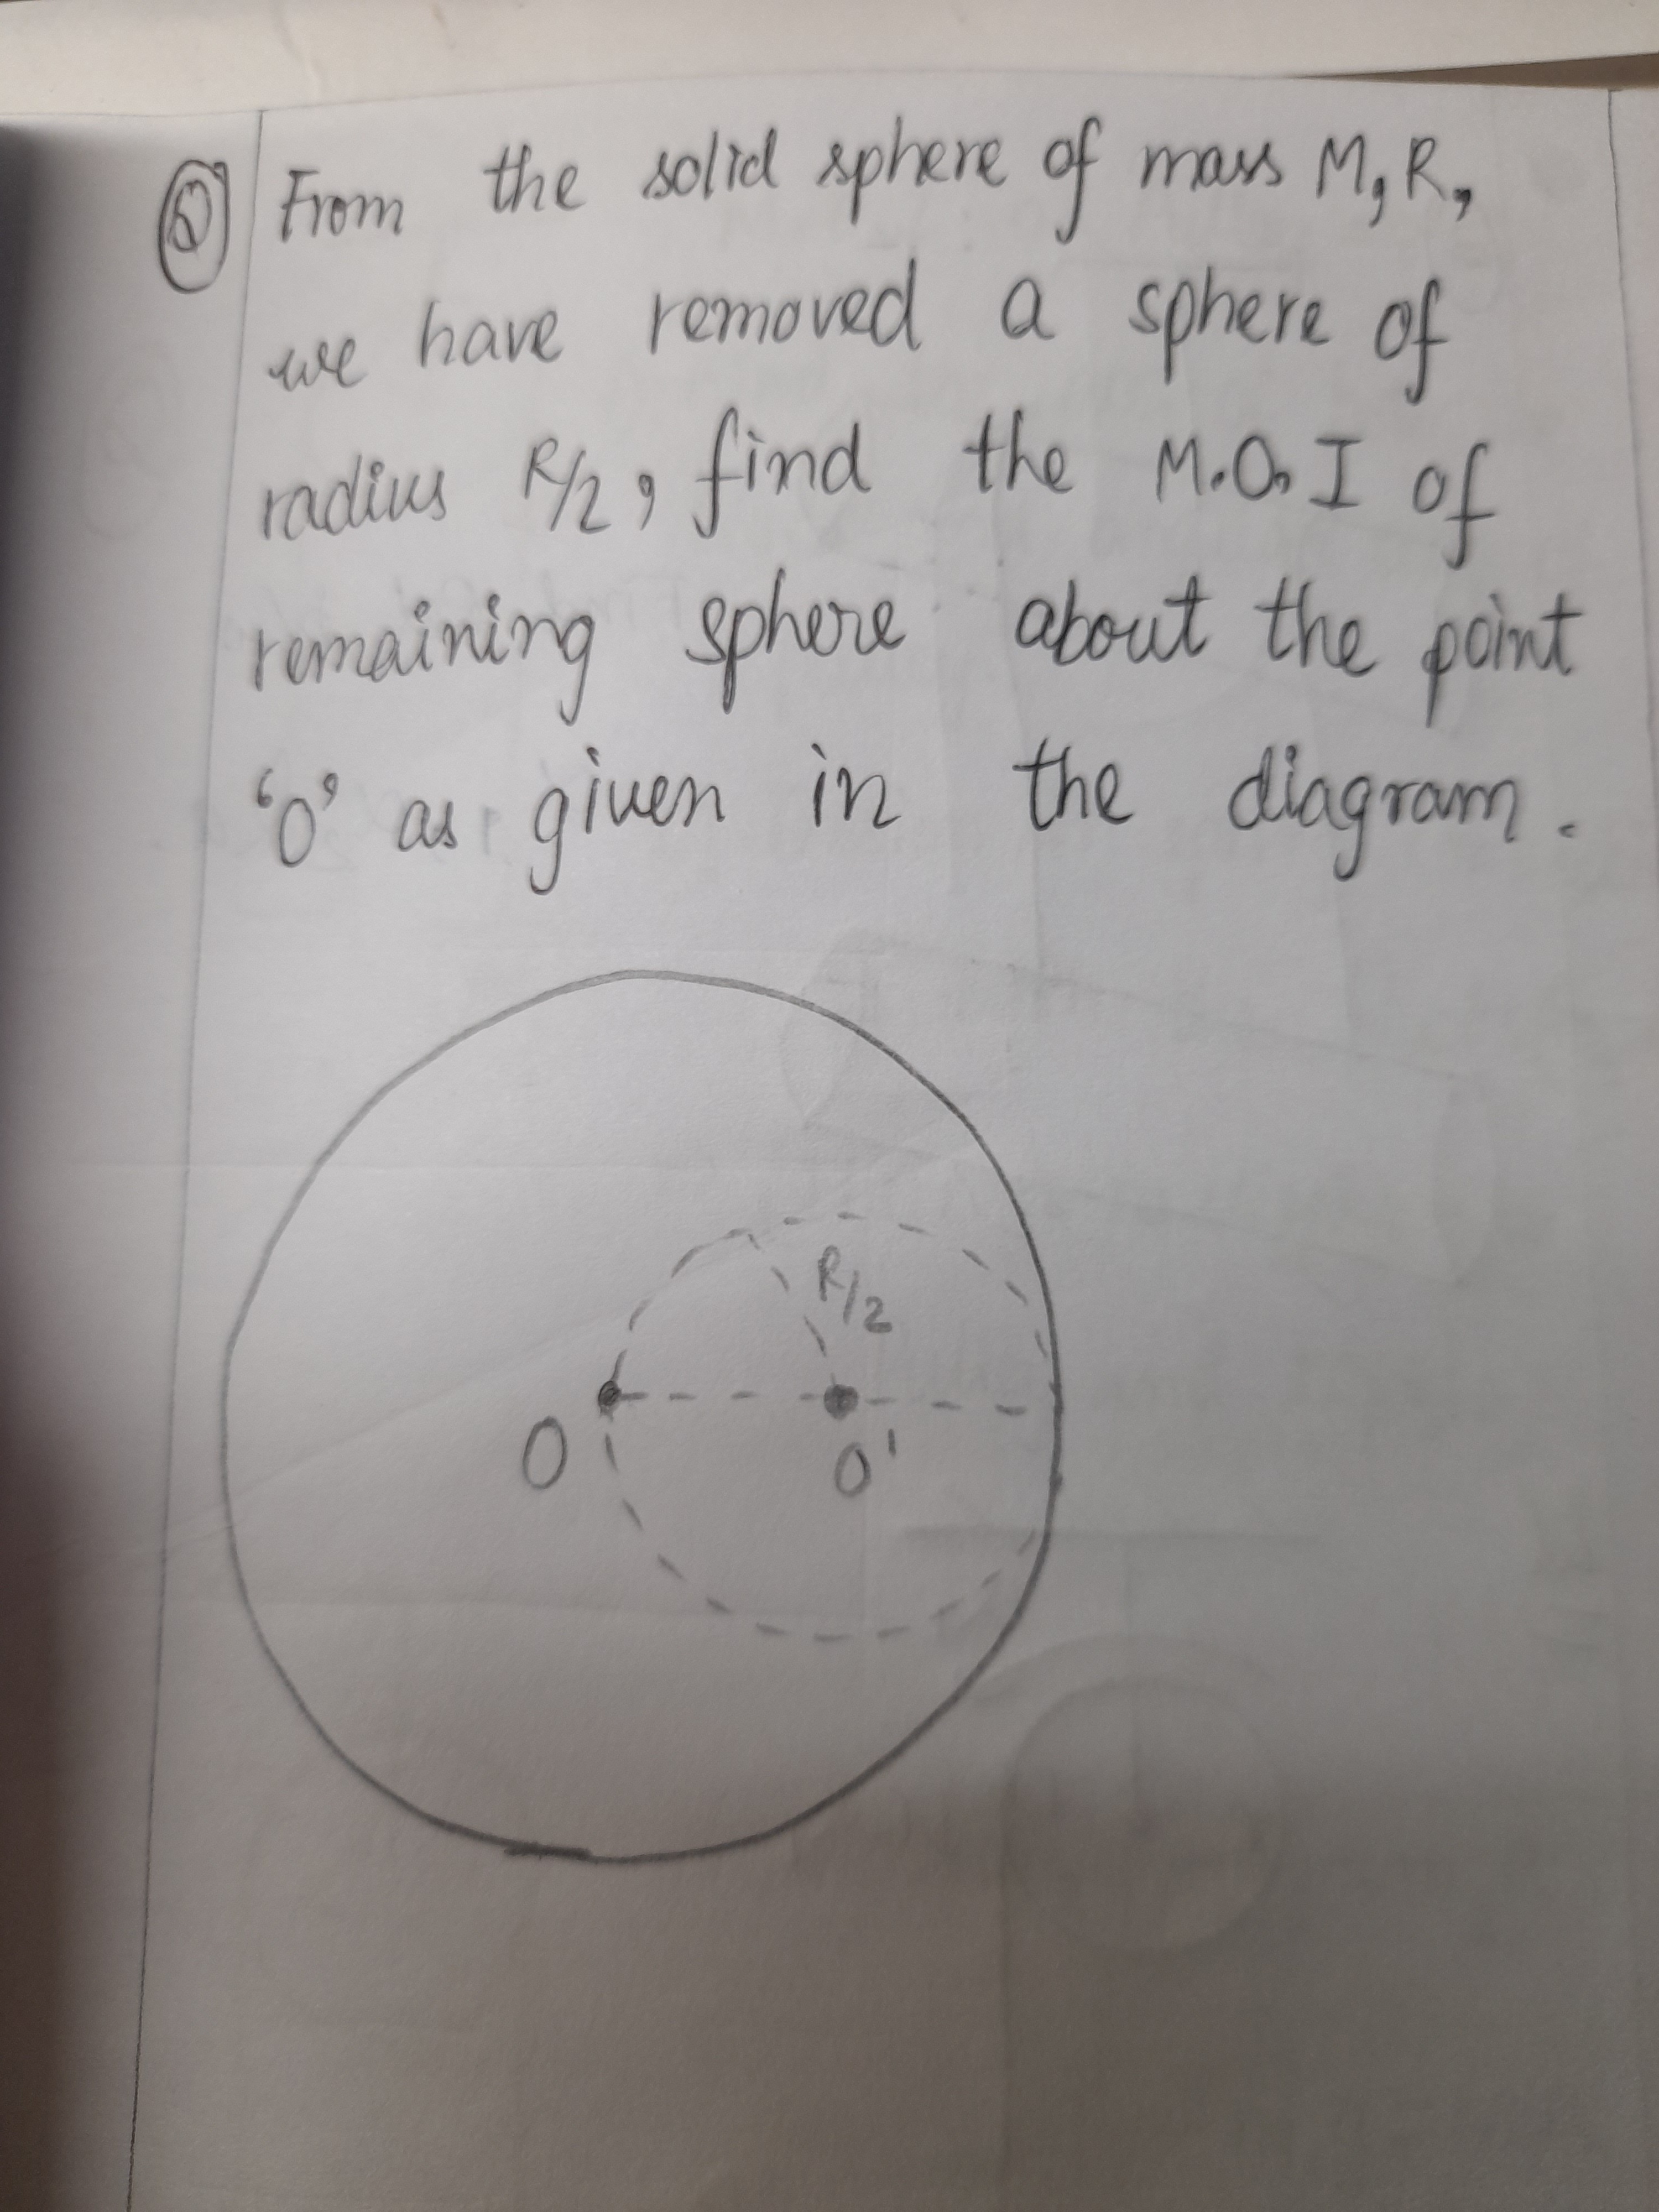 Q From the solid sphere of mass M, R,
we have removed a sphere of
radius R/2, find the M.O.I of
remaining sphere about the point
'O' as given in the diagram.
R/2
O
O'